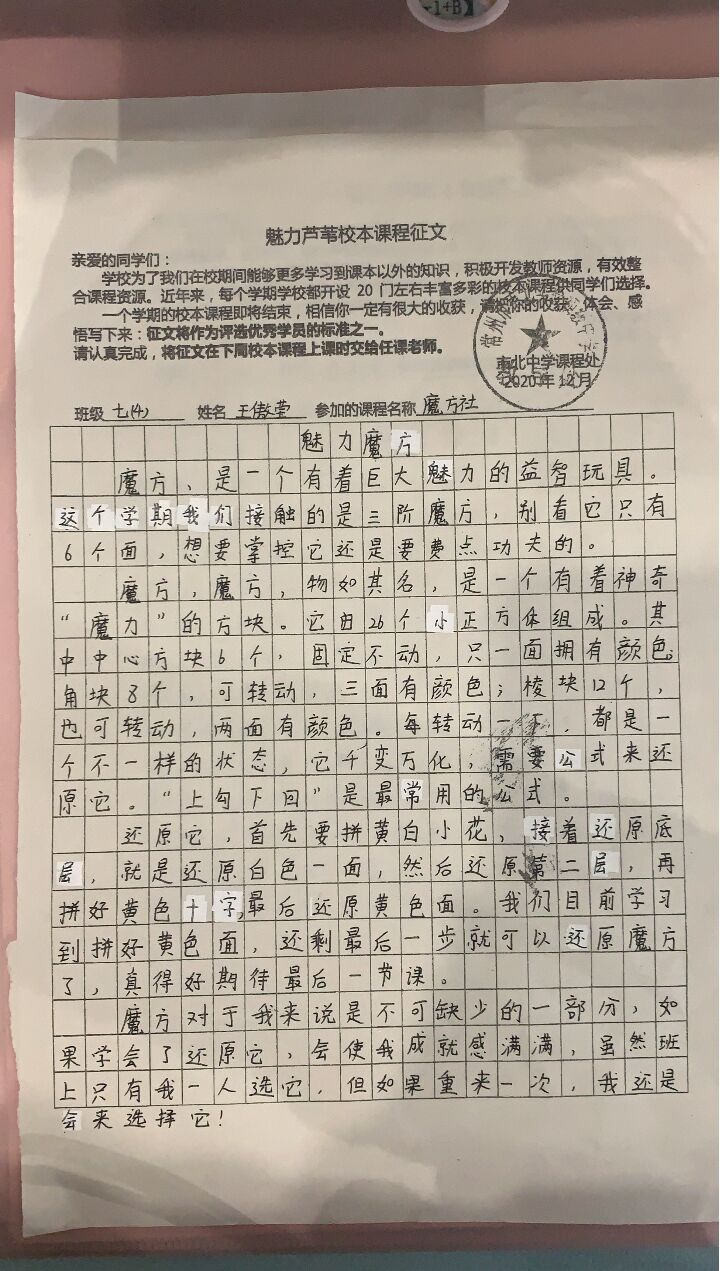 -1+B】
魅力芦苇校本课程征文
亲爱的同学们：
学校为了我们在校期间能够更多学习到课本以外的知识，积极开发教师资源，有效整
合课程资源。近年来，每个学期学校都开设 20 门左右丰富多彩的校本课程供同学们选择。
一个学期的校本课程即将结束，相信你一定有很大的收获，请把你的收获、体会、感
悟写下来：征文将作为评选优秀学员的标准之一。
请认真完成，将征文在下周校本课程上课时交给任课老师。
市北中学课程处
2020 年 12 月
班级 七(4) 姓名 王傲莹 参加的课程名称 魔方社
魅力魔方
魔方，是一个有着巨大魅力的益智玩具。
这个学期我们接触的是三阶魔方，别看它只有
6个面，想要掌控它还是要费点功夫的。
魔方，魔方，物如其名，是一个有着神奇
“魔力”的方块。它由26个小正方体组成。其
中中心方块6个，固定不动，只一面拥有颜色；
角块8个，可转动，三面有颜色；棱块12个，
也可转动，两面有颜色。每转动一下，都是一
个不一样的状态，它千变万化，需要公式来还
原它。“上勾下回”是最常用的公式。
还原它，首先要拼黄白小花，接着还原底
层，就是还原白色一面，然后还原第二层，再
拼好黄色十字，最后还原黄色面。我们目前学习
到拼好黄色面，还剩最后一步就可以还原魔方
了，真得好期待最后一节课。
魔方对于我来说是不可缺少的一部份，如
果学会了还原它，会使我成就感满满，虽然班
上只有我一人选它，但如果重来一次，我还是
会来选择它！